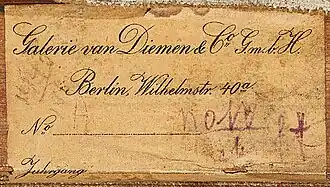 Galerie van Diemen & Co G.m.b.H.
Berlin, Wilhelmstr. 40a
No
Jahrgang